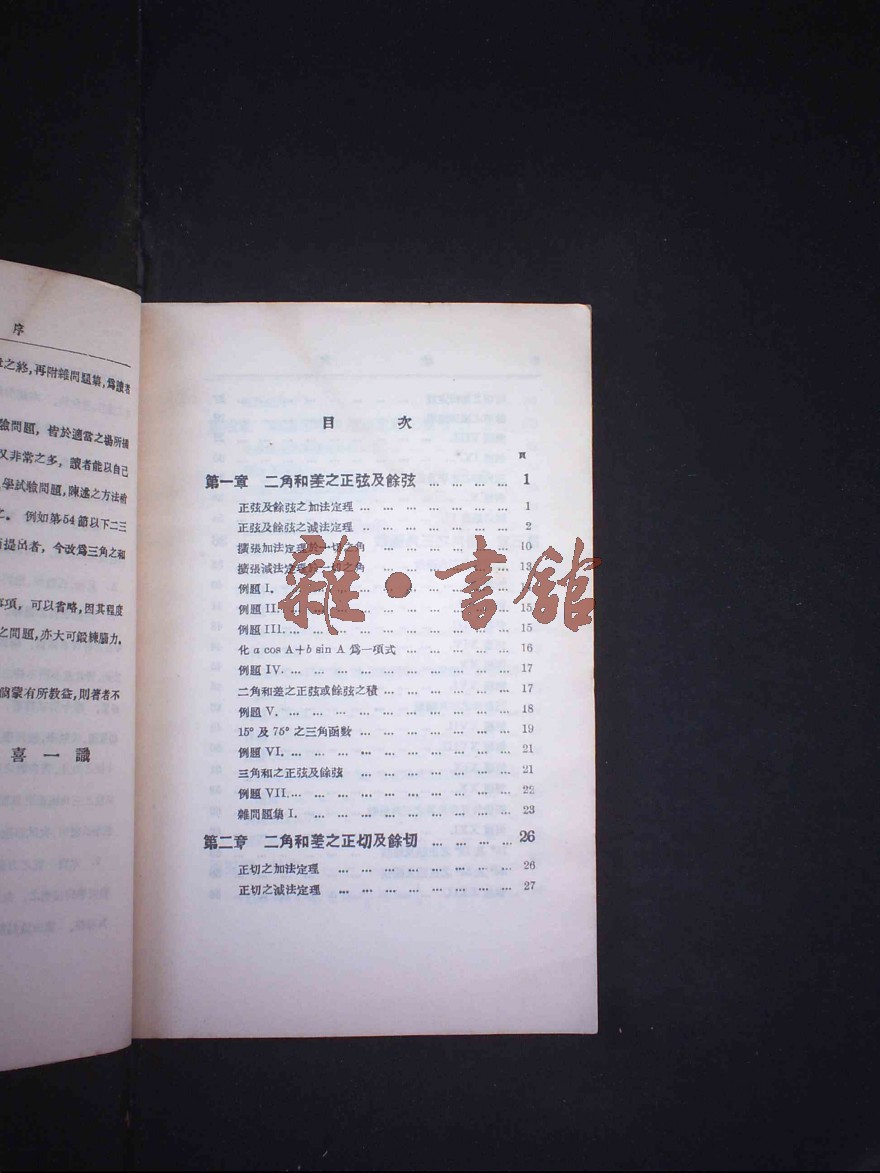 序
之終,再附雜問題集,爲讀者
驗問題，皆於適當之場所插
又非常之多，讀者能以自己
學試驗問題,陳述之方法
之。 例如第54節以下二三
而提出者，今改爲三角之和
事項，可以省略,因其程度
之問題,亦大可鍛練腦力.
倘蒙有所教益,則著者不
喜一識
目 次
頁
第一章 二角和差之正弦及餘弦 … … … … 1
正弦及餘弦之加法定理 … … … … … … … 1
正弦及餘弦之減法定理 … … … … … … … 2
擴張加法定理於一切之角 … … … … … … 10
擴張減法定理於一切之角 … … … … … … 13
例題 I. … … … … … … … … … … 14
例題 II. … … … … … … … … … … 15
例題 III. … … … … … … … … … … 15
化 a cos A+b sin A 爲一項式 … … … … … 16
例題 IV. … … … … … … … … … … 17
二角和差之正弦或餘弦之積 … … … … … … 17
例題 V. … … … … … … … … … … 18
15° 及 75° 之三角函數 … … … … … … … 19
例題 VI. … … … … … … … … … … 21
三角和之正弦及餘弦 … … … … … … … 21
例題 VII. … … … … … … … … … … 22
雜問題集 I. … … … … … … … … … 23
第二章 二角和差之正切及餘切 … … … … 26
正切之加法定理 … … … … … … … … 26
正切之減法定理 … … … … … … … … 27
雜·書館